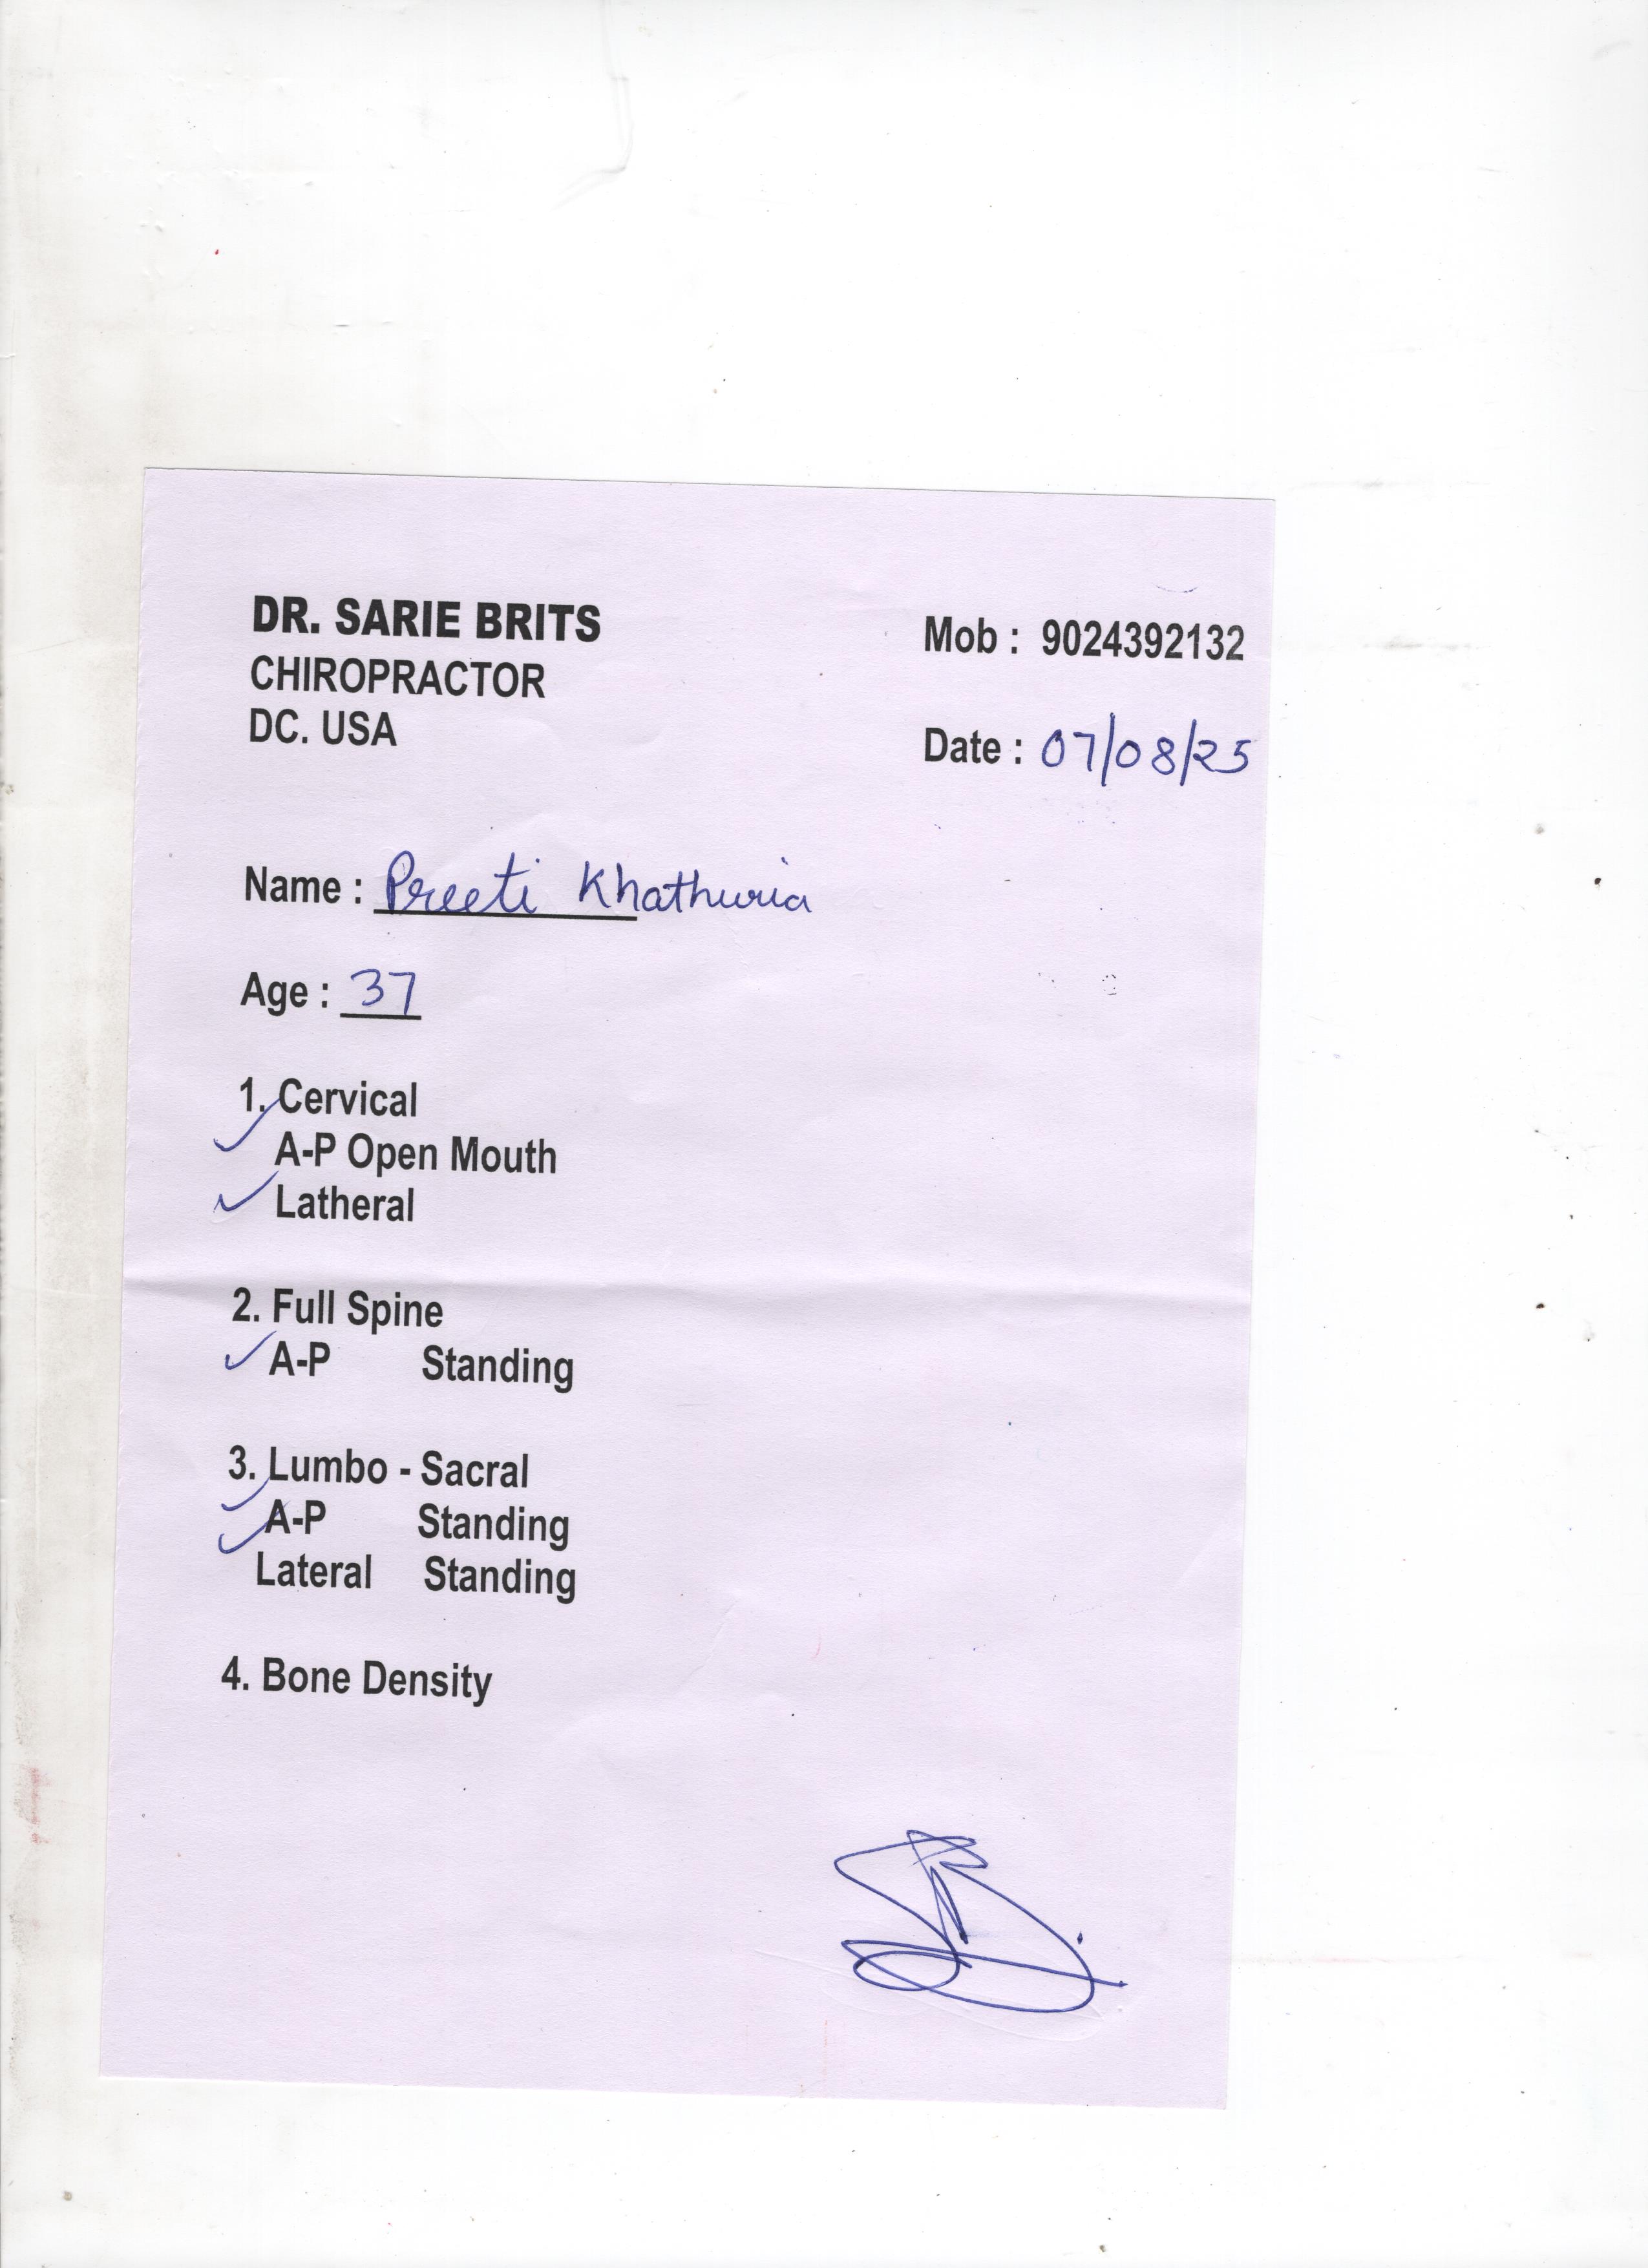 DR. SARIE BRITS
CHIROPRACTOR
DC. USA
Mob : 9024392132
Date : 07/08/25
Name : Preeti Khathuria
Age : 37
1. Cervical
✓ A-P Open Mouth
✓ Latheral
2. Full Spine
✓ A-P Standing
3. Lumbo - Sacral
✓ A-P Standing
✓ Lateral Standing
4. Bone Density